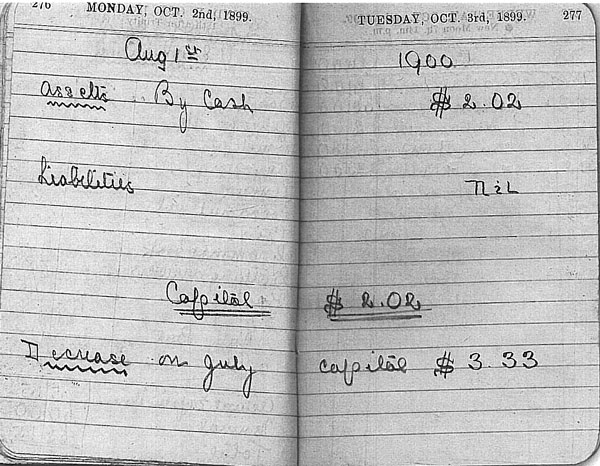 276 MONDAY, OCT. 2nd, 1899.
TUESDAY, OCT. 3rd, 1899. 277
Aug 1st 1900
Assetts By Cash $ 2.02
Liabilities Nil
Capital $ 2.02
Decrease on July capital $ 3.33